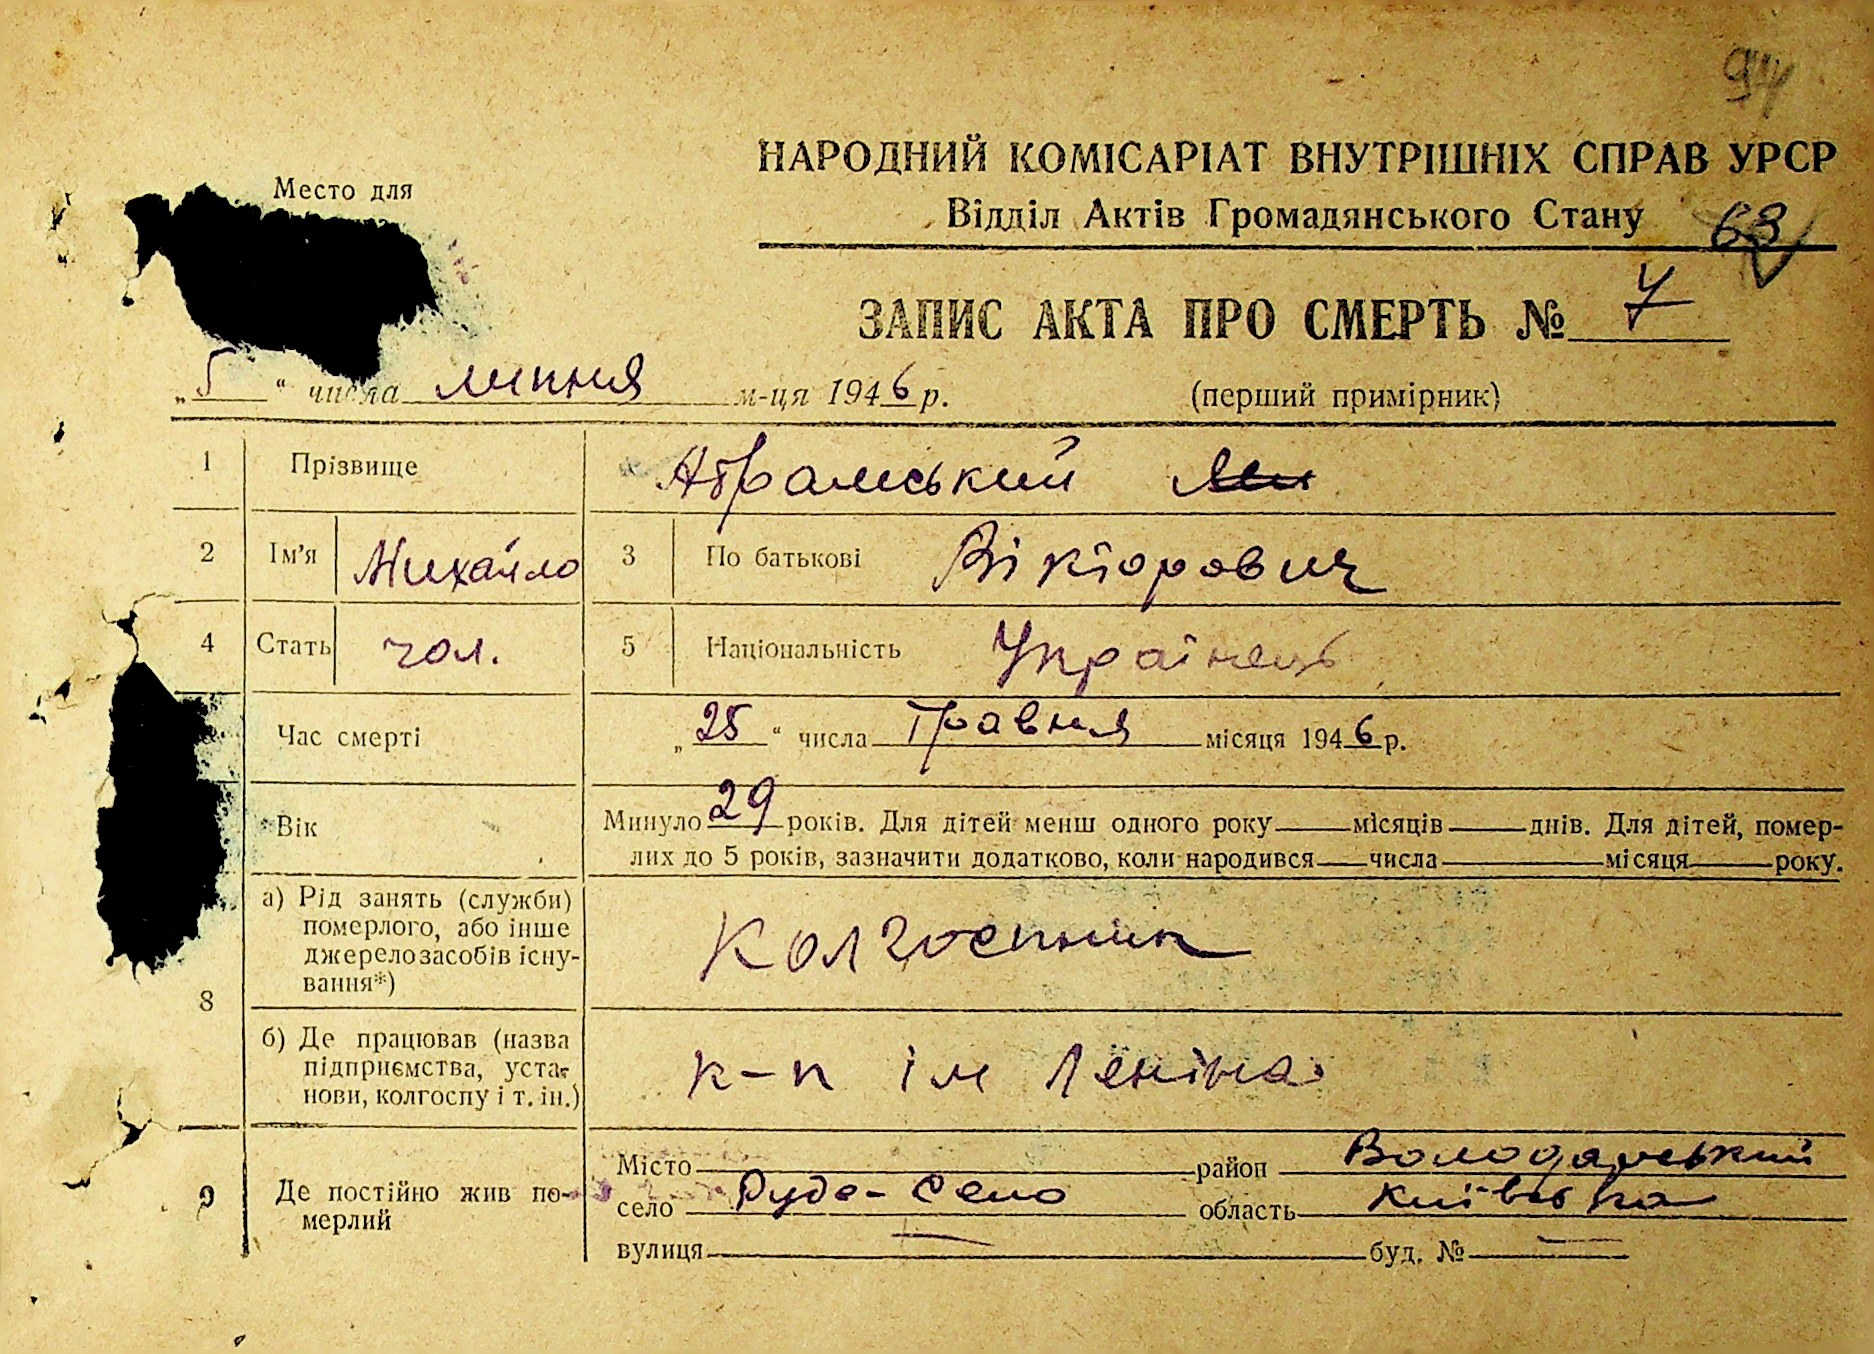 94
НАРОДНИЙ КОМІСАРІАТ ВНУТРІШНІХ СПРАВ УРСР
Место для
Відділ Актів Громадянського Стану 68
ЗАПИС АКТА ПРО СМЕРТЬ № 7
„5“ числа липня м-ця 1946 р. (перший примірник)
1 Прізвище Абрамський
2 Ім’я Михайло 3 По батькові Вікторович
4 Стать чол. 5 Національність Українець
Час смерті „25“ числа Травня місяця 1946 р.
Вік Минуло 29 років. Для дітей менш одного року місяців днів. Для дітей, помер-
лих до 5 років, зазначити додатково, коли народився числа місяця року.
8 а) Рід занять (служби)
померлого, або інше
джерело засобів існу-
вання*)
Колгоспник
б) Де працював (назва
підприємства, уста-
нови, колгоспу і т. ін.)
к-п ім Леніна
9 Де постійно жив по-
мерлий
Місто район Володарський
село Руде-Село область Київська
вулиця — буд. № —